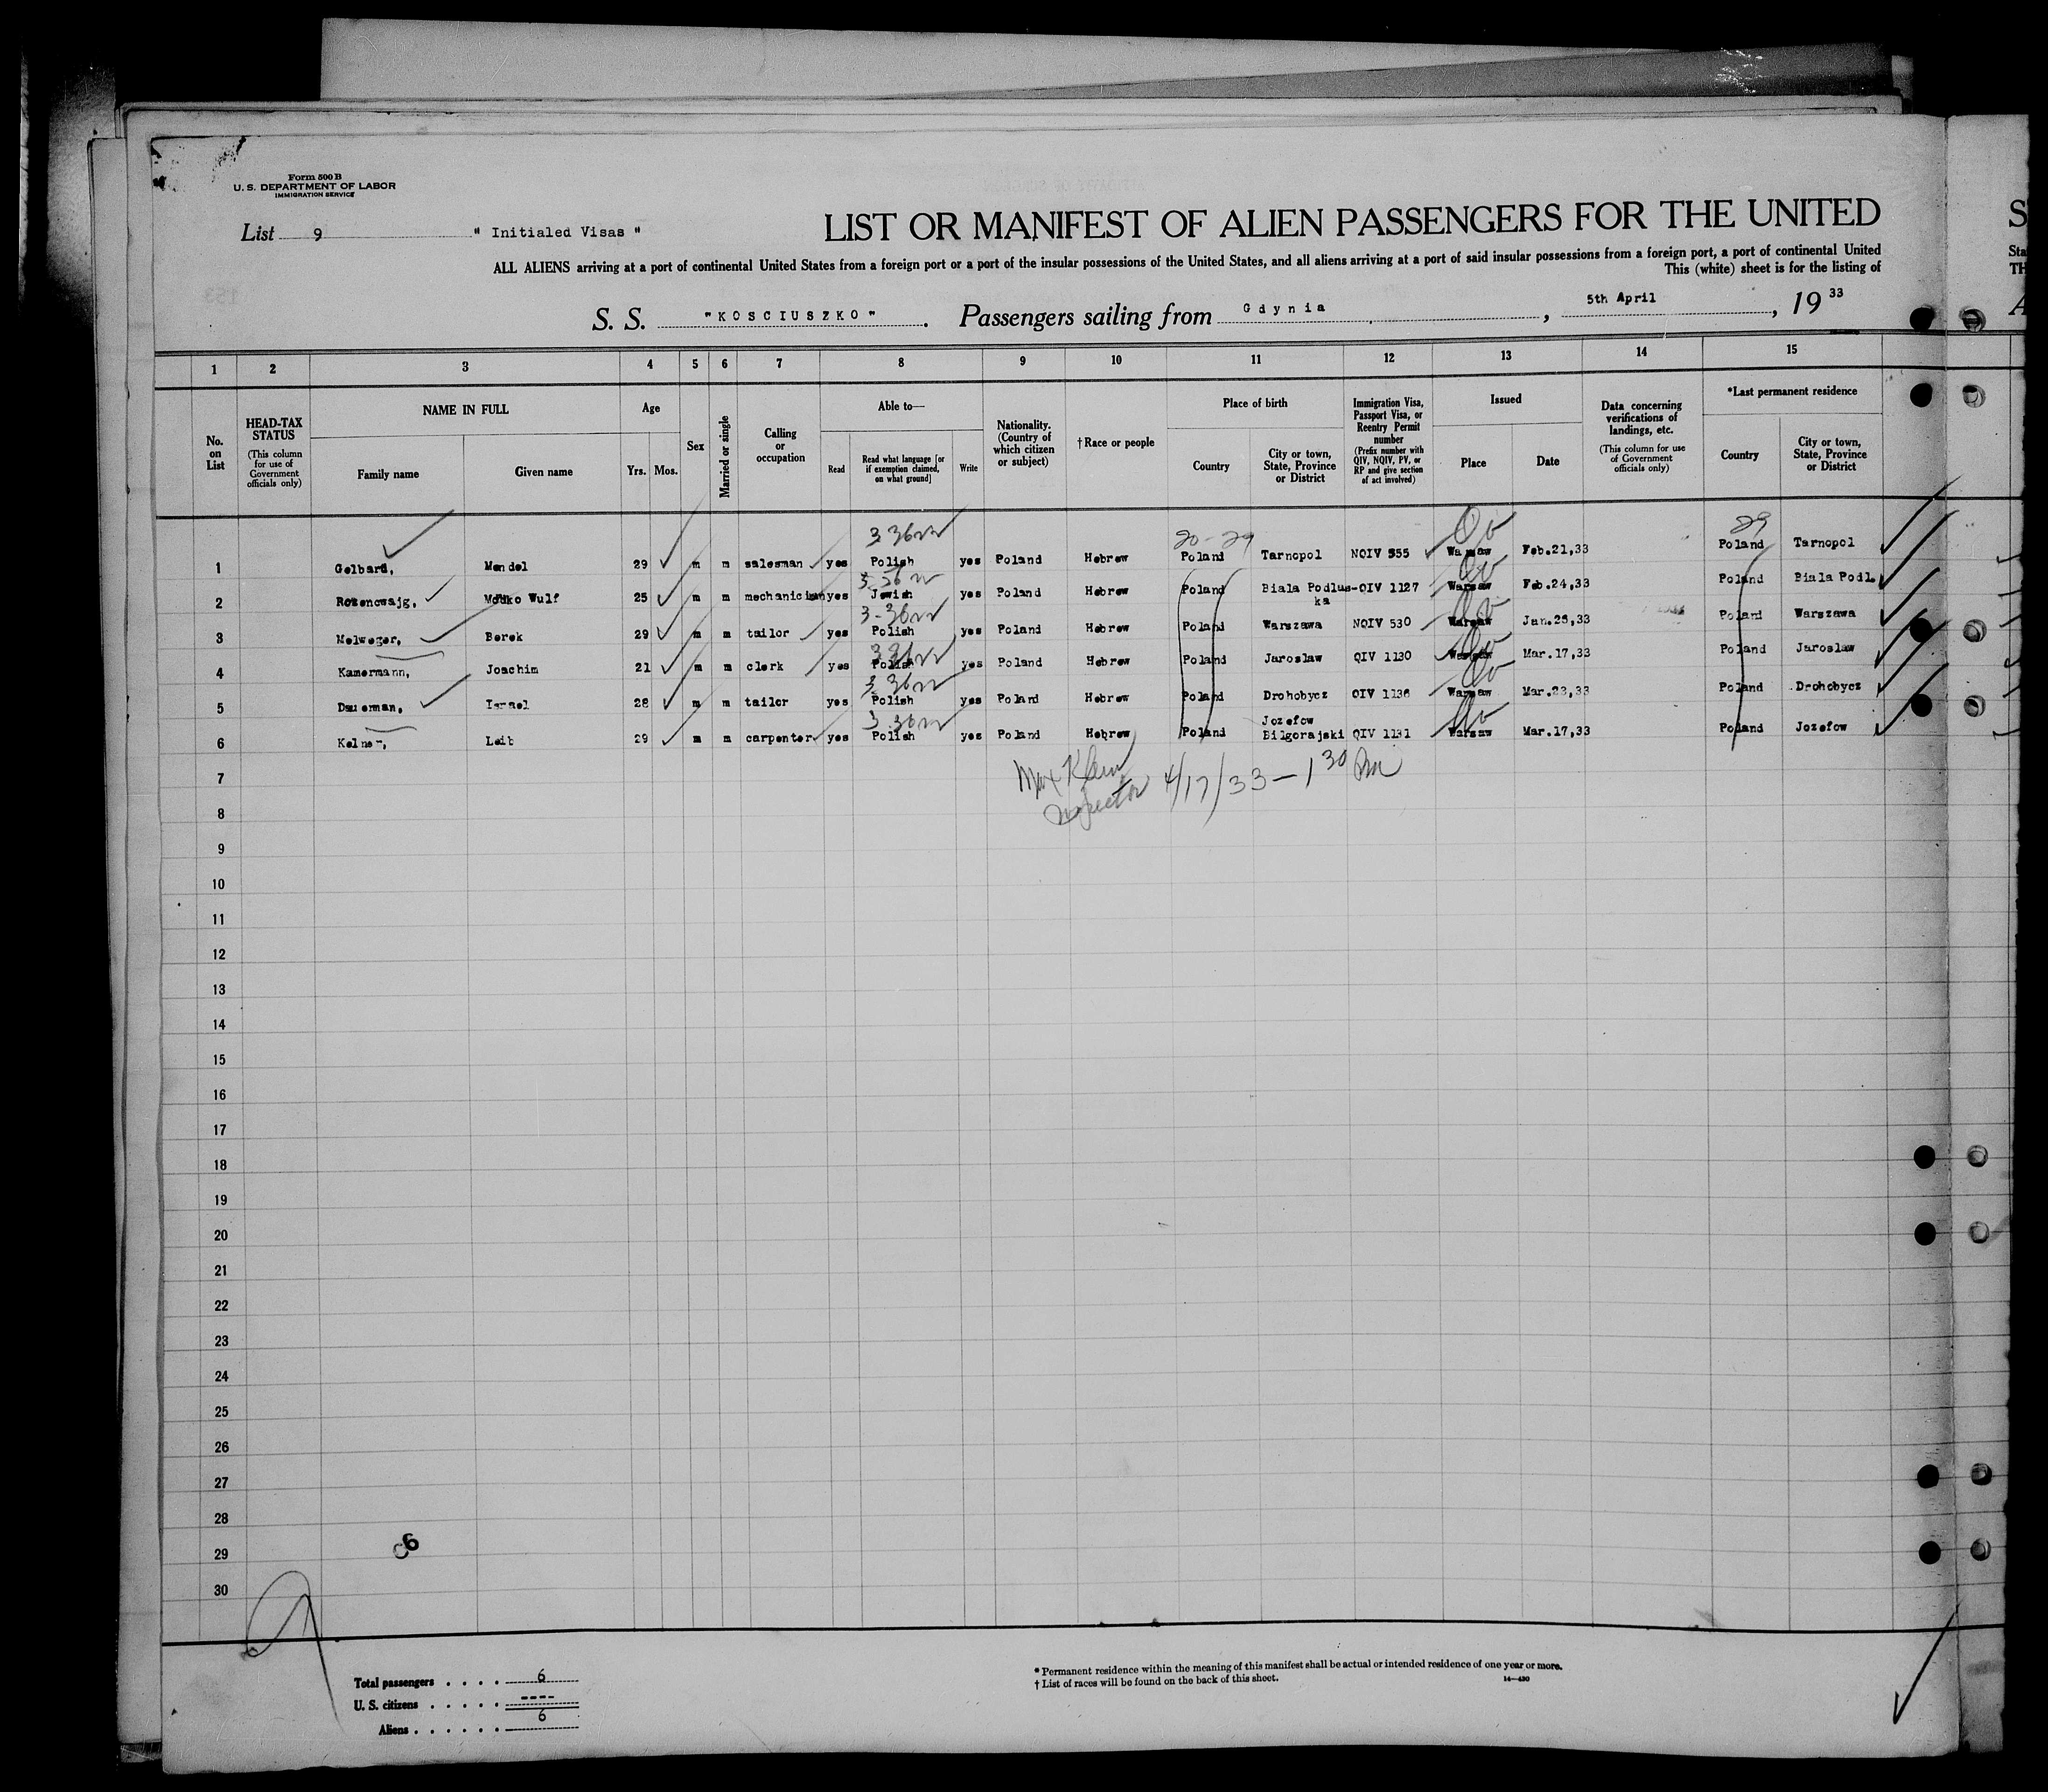 Form 500 B
U. S. DEPARTMENT OF LABOR
IMMIGRATION SERVICE
List 9 " Initialed Visas "
LIST OR MANIFEST OF ALIEN PASSENGERS FOR THE UNITED
ALL ALIENS arriving at a port of continental United States from a foreign port or a port of the insular possessions of the United States, and all aliens arriving at a port of said insular possessions from a foreign port, a port of continental United
This (white) sheet is for the listing of
S. S. "KOSCIUSZKO". Passengers sailing from Gdynia, 5th April, 19 33
1 2 3 4 5 6 7 8 9 10 11 12 13 14 15
No. on List
HEAD-TAX STATUS
(This column for use of Government officials only)
NAME IN FULL
Family name
Given name
Age
Yrs. Mos.
Sex
Married or single
Calling or occupation
Able to—
Read
Read what language [or if exemption claimed, on what ground]
Write
Nationality. (Country of which citizen or subject)
† Race or people
Place of birth
Country
City or town, State, Province or District
Immigration Visa, Passport Visa, or Reentry Permit number
(Prefix number with QIV, NQIV, PV, or RP and give section of act involved)
Issued
Place
Date
Data concerning verifications of landings, etc.
(This column for use of Government officials only)
*Last permanent residence
Country
City or town, State, Province or District
20-29 29
1 Gelbard, Mendel 29 m m salesman yes Polish yes Poland Hebrew Poland Tarnopol NQIV 555 Warsaw Feb.21,33 Poland Tarnopol
2 Rozencwajg, Wulf 25 m m yes Jewish yes Poland Hebrew Poland Biala Podlus-ka QIV 1127 Warsaw Feb.24,33 Poland Biala Podl.
3 Melweger, Berek 29 m m tailor yes Polish yes Poland Hebrew Poland Warszawa NQIV 530 Warsaw Jan.26,33 Poland Warszawa
4 Kamermann, Joachim 21 m m clerk yes Polish yes Poland Hebrew Poland Jaroslaw QIV 1130 Warsaw Mar.17,33 Poland Jaroslaw
5 Dauerman, Israel 28 m m tailor yes Polish yes Poland Hebrew Poland Drohobycz QIV 1136 Warsaw Mar.23,33 Poland Drohobycz
6 Kelner, Leib 29 m m carpenter yes Polish yes Poland Hebrew Poland Jozefow Bilgorajski QIV 1131 Warsaw Mar.17,33 Poland Jozefow
Max Klein
Inspector 4/17/33 - 1 30 Pm
7
8
9
10
11
12
13
14
15
16
17
18
19
20
21
22
23
24
25
26
27
28
29
30
6
Total passengers . . . . 6
U. S. citizens . . . . . ----
Aliens . . . . . . 6
* Permanent residence within the meaning of this manifest shall be actual or intended residence of one year or more.
† List of races will be found on the back of this sheet.
14—430